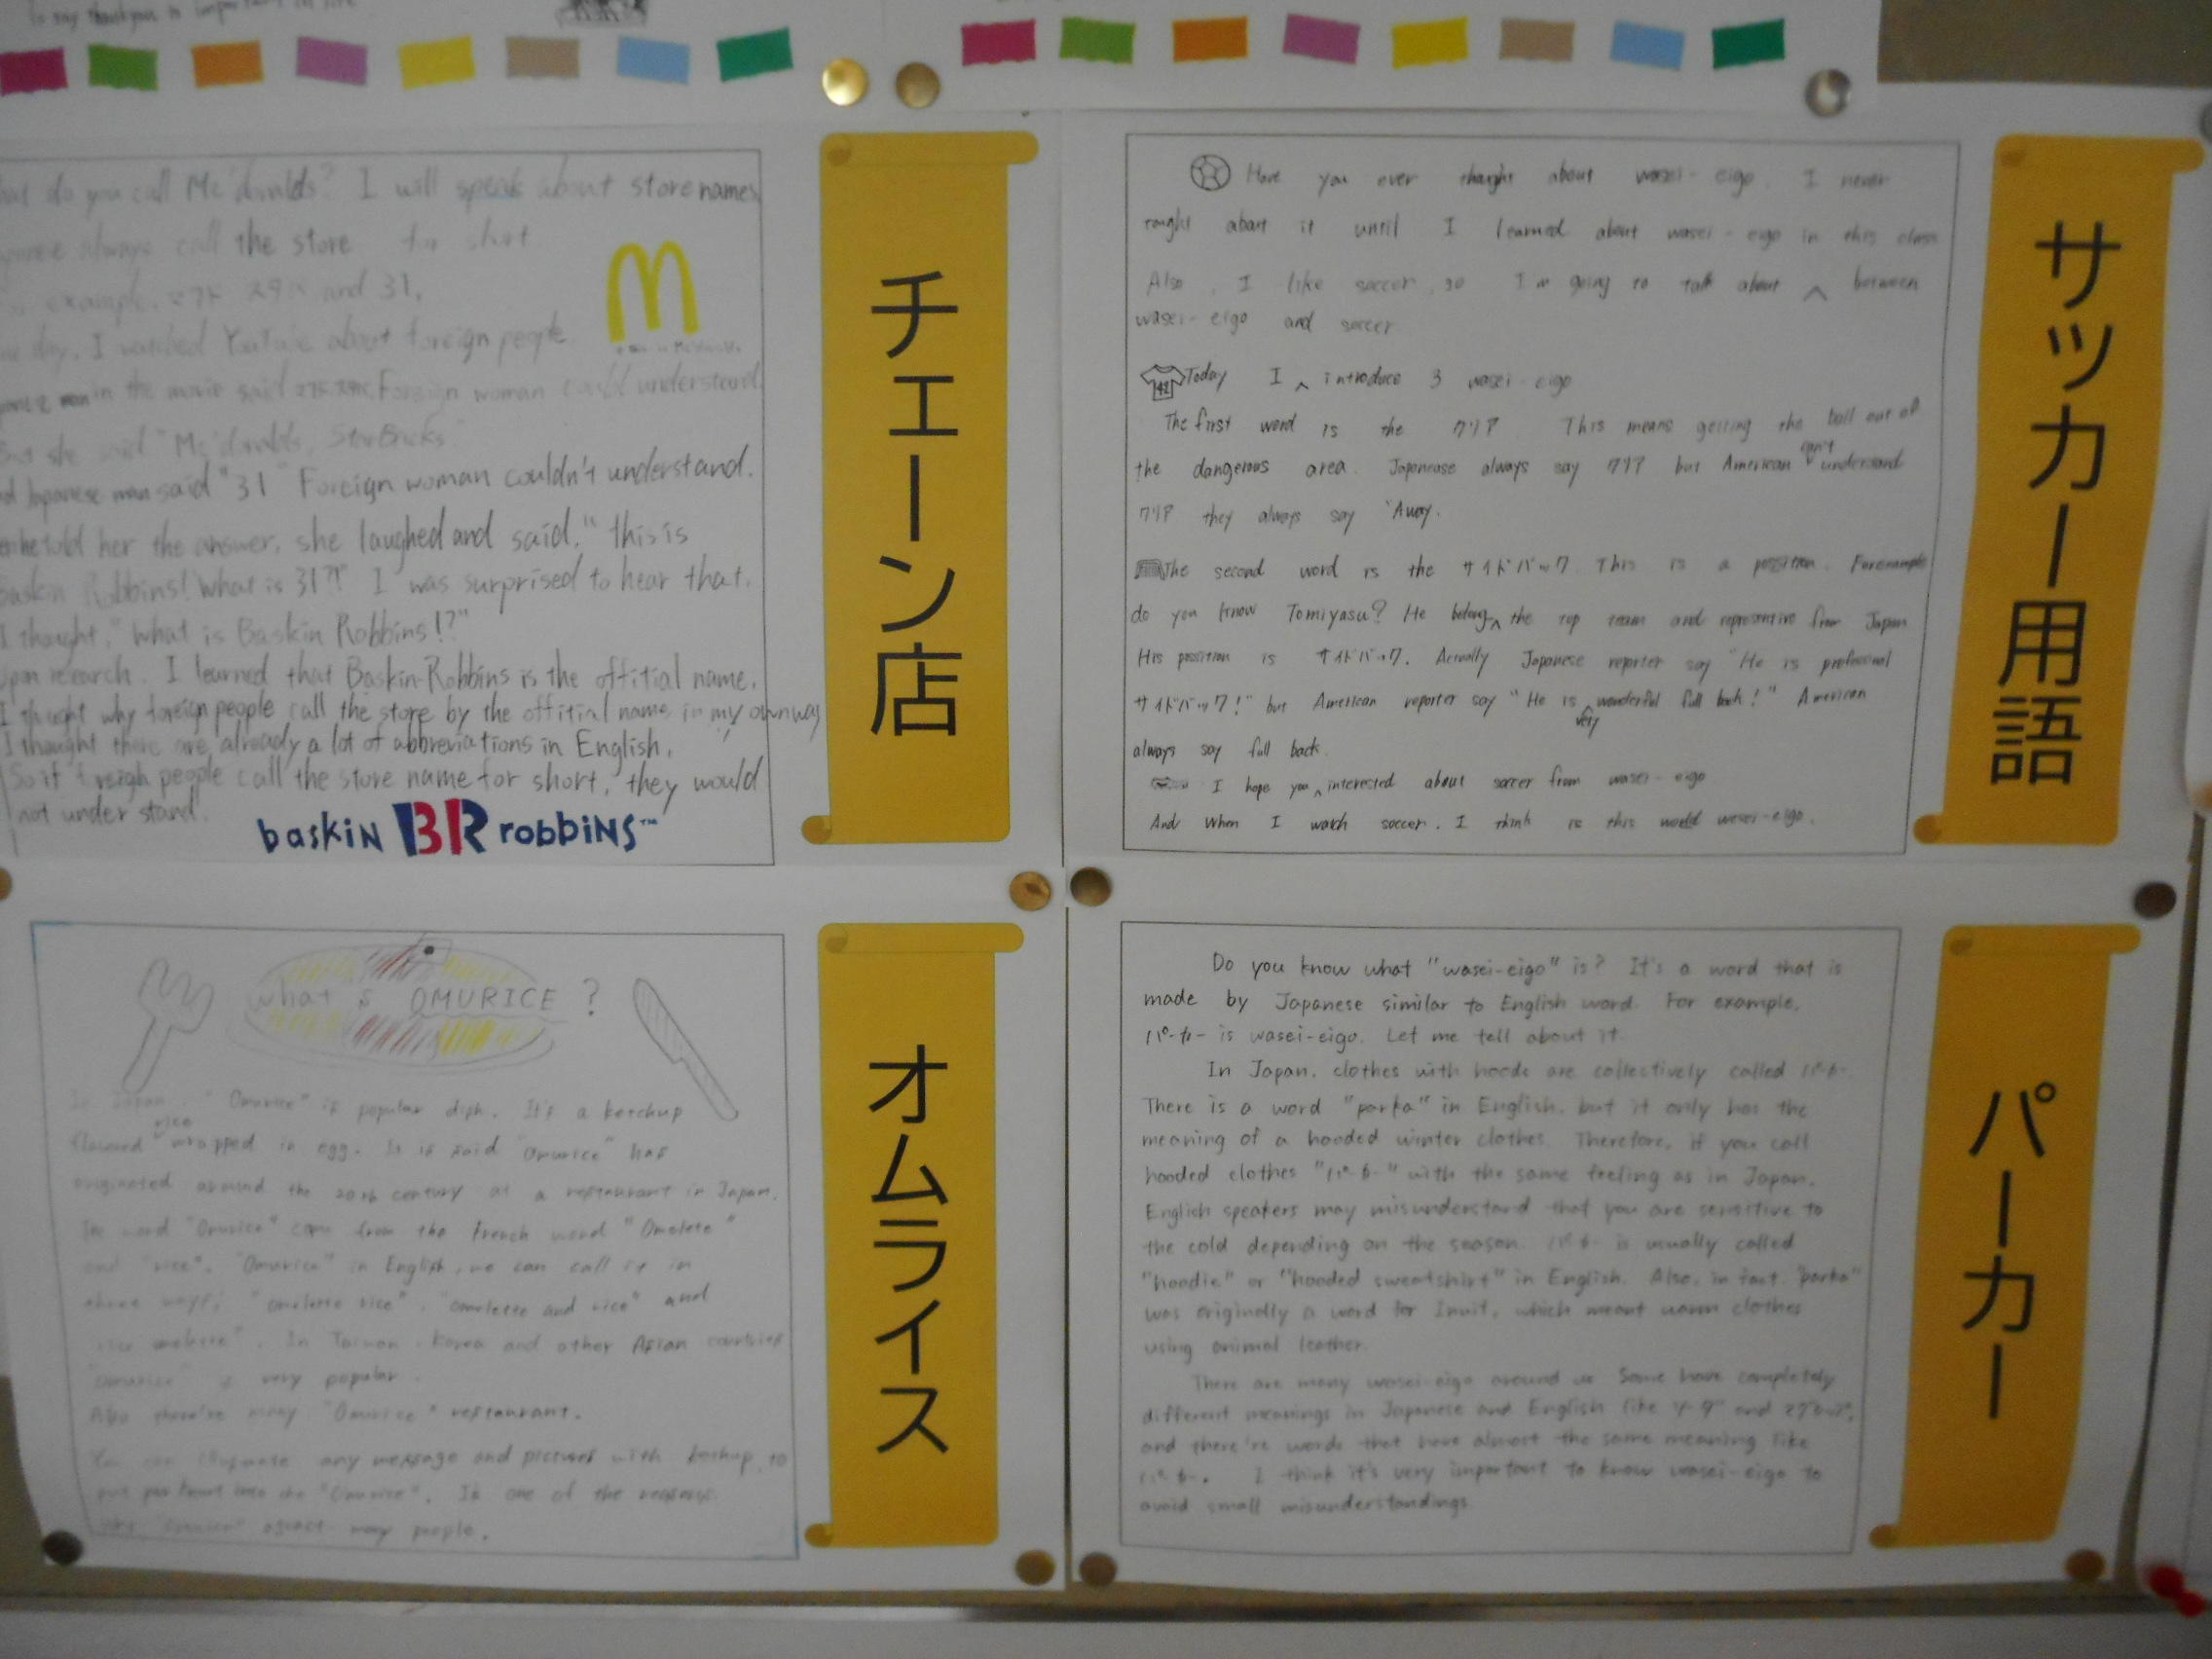 To say thank you is important in life
do you call Mc'donalds? I will speak about store names
always call the store for short.
example, マクド スタバ and 31.
day, I watched YouTube about foreign people
in the movie said Foreign woman could understand.
But she said "Mc'donalds, StarBucks"
Japanese man said "31" Foreign woman couldn't understand.
he told her the answer, she laughed and said, "this is
Baskin Robbins! What is 31?!" I was surprised to hear that.
I thought, "What is Baskin Robbins!?"
Upon research, I learned that Baskin-Robbins is the offitial name.
I thught why foreign people call the store by the offitial name in my own way
I thought there are already a lot of abbreviations in English.
So if foreign people call the store name for short, they would
not under stand.
baskin BR robbins™
チェーン店
Have you ever thaght about wasei-eigo. I never
taught about it until I learned about wasei-eigo in this class
Also, I like soccer, so I'm going to talk about ^ between
wasei-eigo and soccer
42
Today I ^ introduce 3 wasei-eigo
The first word is the クリア This means getting the ball out of
the dangerous area. Japanease always say クリア but American can't understand
クリア they always say "Away.
The second word is the サイドバック This is a position. Forexample
do you know Tomiyasu? He belong ^ the top team and representive from Japan
His position is サイドバック. Actually Japanese reporter say "He is professional
サイドバック!" but American reporter say "He is very wonderful full back!" American
always say full back.
I hope you ^ interested about soccer from wasei-eigo
And when I watch soccer, I think is this world wasei-eigo.
サッカー用語
what s OMURICE ?
In Japan, "Omurice" is popular dish. It's a ketchup
flavored rice wrapped in egg. It is said "Omurice" has
originated around the 20th century at a restaurant in Japan.
The word "Omurice" came from the French word "Omelete"
and "rice". "Omurice" in English, we can call it in
three ways; "omelette rice", "omelette and rice" and
"rice omelette". In Taiwan, Korea and other Asian countries
"Omurice" is very popular.
Also there're many "Omurice" restaurant.
You can any message and pictures with kechup, to
put your heart into the "Omurice". Is one of the reasons
why "Omurice" many people.
オムライス
Do you know what "wasei-eigo" is? It's a word that is
made by Japanese similar to English word. For example,
パーカー is wasei-eigo. Let me tell about it.
In Japan, clothes with hoods are collectively called パーカー.
There is a word "parka" in English, but it only has the
meaning of a hooded winter clothes. Therefore, if you call
hooded clothes "パーカー" with the same feeling as in Japan,
English speakers may misunderstand that you are sensitive to
the cold depending on the season. パーカー is usually called
"hoodie" or "hooded sweatshirt" in English. Also, in fact, "parka"
was originally a word for Inuit, which meant warm clothes
using animal leather.
There are many wasei-eigo around us. Some have completely
different meanings in Japanese and English like and
and there're words that have almost the same meaning like
パーカー. I think it's very important to know wasei-eigo to
avoid small misunderstandings.
パーカー